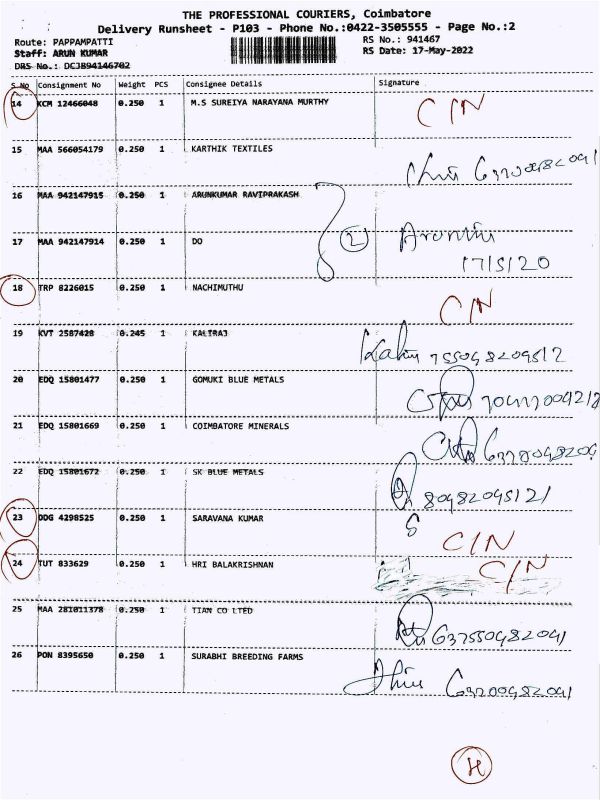 THE PROFESSIONAL COURIERS, Coimbatore
Delivery Runsheet - P103 - Phone No.:0422-3505555 - Page No.:2
Route: PAPPAMPATTI
RS No.: 941467
Staff: ARUN KUMAR
RS Date: 17-May-2022
DRS No.: DCJB94146702
S.No Consignment No Weight PCS Consignee Details Signature
14 KCM 12466048 0.250 1 M.S SUREIYA NARAYANA MURTHY C/N
15 MAA 566054179 0.250 1 KARTHIK TEXTILES
16 MAA 942147915 0.250 1 ARUNKUMAR RAVIPRAKASH
17 MAA 942147914 0.250 1 DO 2
17/5/20
18 TRP 8226015 0.250 1 NACHIMUTHU C/N
19 KVT 2587428 0.245 1 KALIRAJ
20 EDQ 15801477 0.250 1 GOMUKI BLUE METALS
21 EDQ 15801669 0.250 1 COIMBATORE MINERALS
22 EDQ 15801672 0.250 1 SK BLUE METALS
23 DDG 4298525 0.250 1 SARAVANA KUMAR C/N
24 TUT 833629 0.250 1 HRI BALAKRISHNAN C/N
25 MAA 281011378 0.250 1 TIAN CO LTED
26 PON 8395650 0.250 1 SURABHI BREEDING FARMS